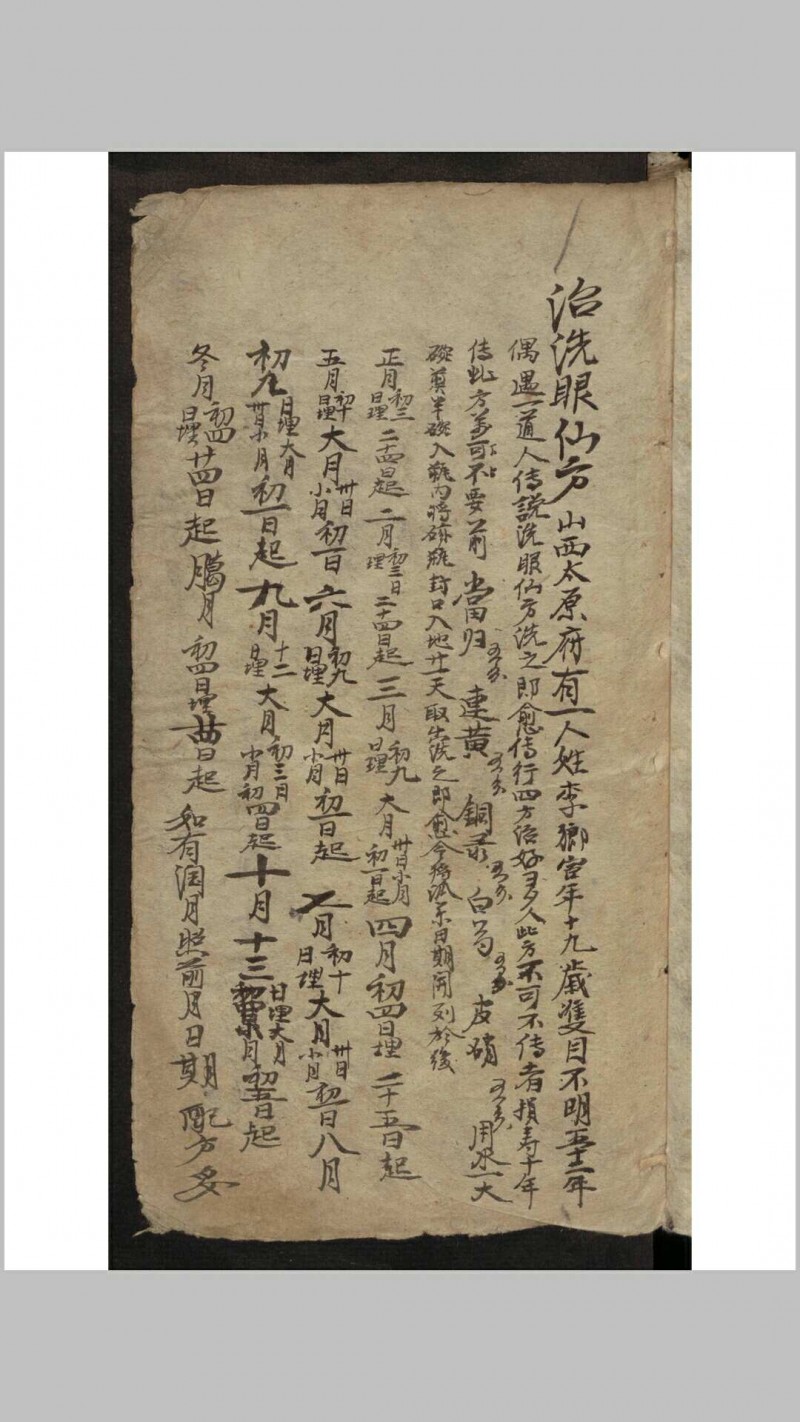 治洗眼仙方山西太原府有一人姓李鄉宦年十九歲雙目不明五十二年
偶遇一道人传說洗眼仙方洗之即愈传行四方治好多人此方不可不传者損寿十年
传此方萬可不要前 當归 連黄 銅录 白芍 皮硝 用水一大
碗煎半碗入瓶内將瓶封口入地廿一天取出洗之即愈今將日期開列於後
正月初三日埋二十四日起二月初三日埋二十四日起三月初九日埋大月卅日小月初一日起四月初四日埋二十五日起
五月初十日埋大月卅日小月初一日六月初九日埋大月卅日小月初一日起七月初十日埋大月卅日小月初一日八月
初九日埋大月卅日小月初一日起九月十二日埋大月初三日小月初四日起十月十三日埋大月小月初五日起
冬月初四日埋廿四日起臈月初四日埋廿四日起如有润月照前月日期配方妥